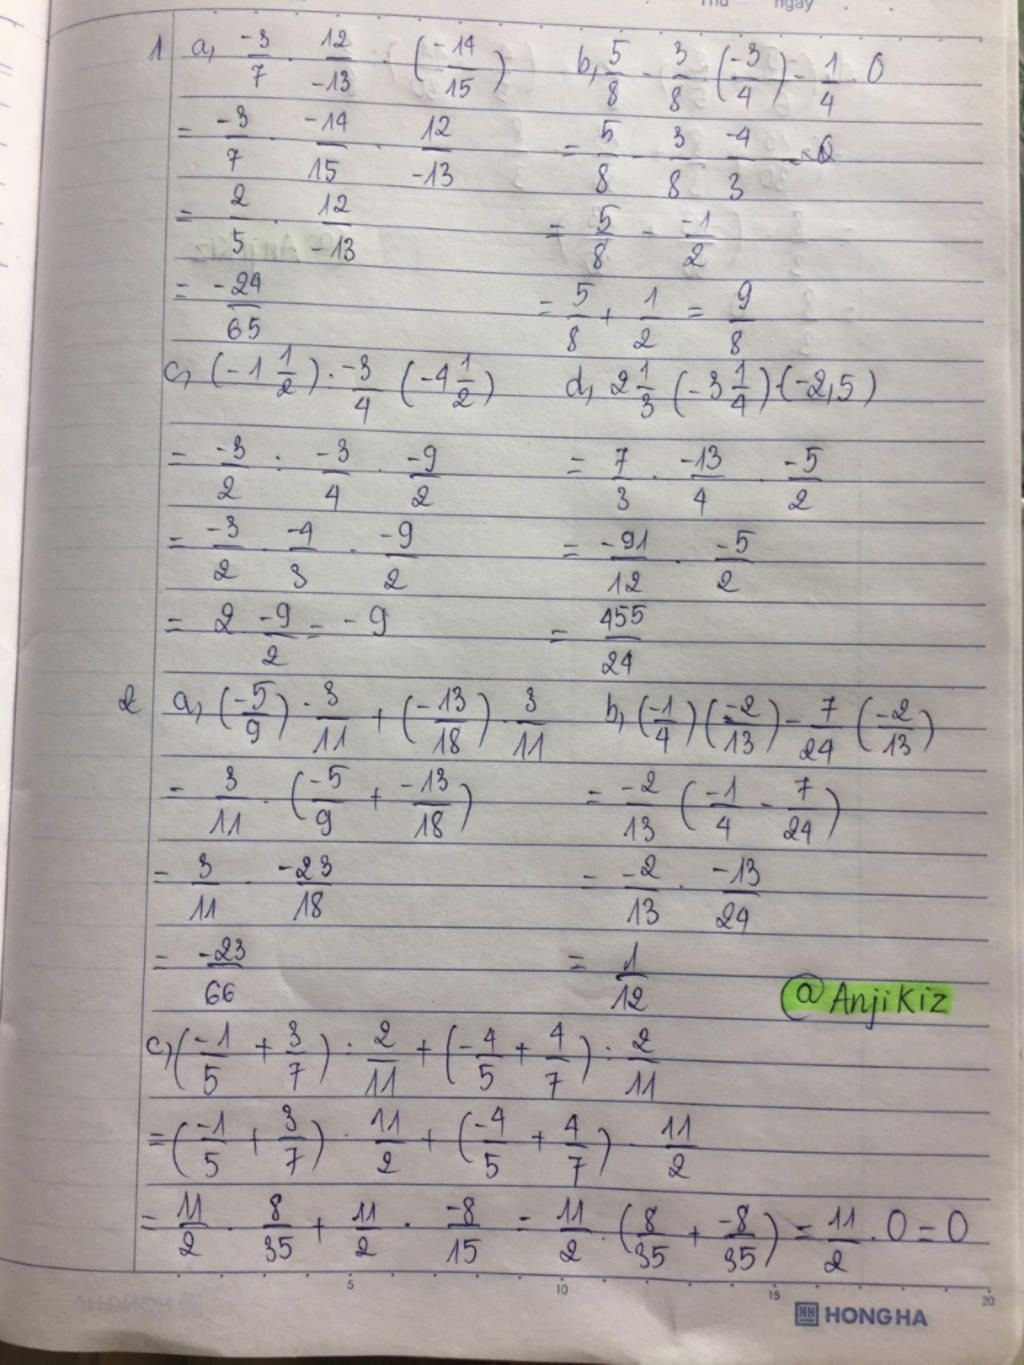 Thứ ngày
1 a, -3/7 · 12/-13 · (-14/15)
= -3/7 · -14/15 · 12/-13
= 2/5 · 12/-13
= -24/65
b, 5/8 - 3/8 : (-3/4) - 1/4 · 0
= 5/8 - 3/8 · -4/3 - 0
= 5/8 - -1/2
= 5/8 + 1/2 = 9/8
c, (-1 1/2) : -3/4 · (-4 1/2)
= -3/2 : -3/4 · -9/2
= -3/2 · -4/3 · -9/2
= 2 · -9/2 = -9
d, 2 1/3 (-3 1/4) · (-2,5)
= 7/3 · -13/4 · -5/2
= -91/12 · -5/2
= 455/24
2 a, (-5/9) · 3/11 + (-13/18) · 3/11
= 3/11 · (-5/9 + -13/18)
= 3/11 · -23/18
= -23/66
b, (-1/4) (-2/13) - 7/24 (-2/13)
= -2/13 (-1/4 - 7/24)
= -2/13 · -13/24
= 1/12
@AnjiKiz
c, (-1/5 + 3/7) : 2/11 + (-4/5 + 4/7) : 2/11
= (-1/5 + 3/7) · 11/2 + (-4/5 + 4/7) · 11/2
= 11/2 · 8/35 + 11/2 · -8/15 = 11/2 · (8/35 + -8/35) = 11/2 · 0 = 0
5 10 15 20
HONG HA